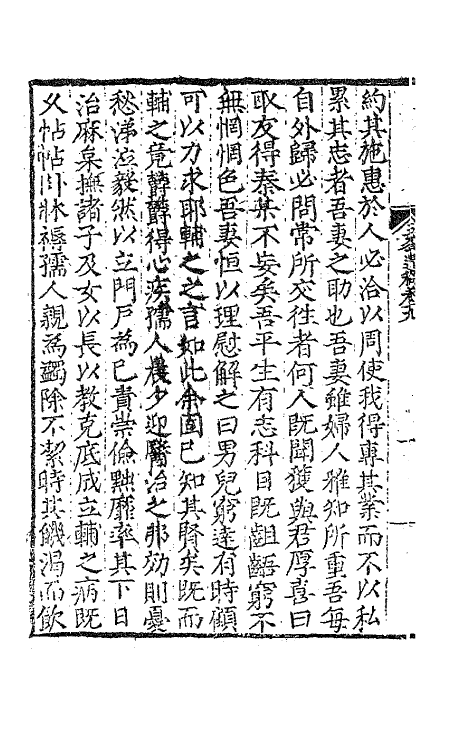 約其施惠於人必洽以周使我得專其業而不以私
累其志者吾妻之助也吾妻雖婦人雅知所重吾每
自外歸必問常所交徃者何人既聞獲與君厚喜曰
取友得秦某不妄矣吾平生有志科目既齟齬窮不
無惘惘色吾妻恒以理慰解之曰男兒窮達有時顧
可以力求耶輔之之言如此余固已知其賢矣既而
輔之竟欝欝得心疾孺人襁少迎醫治之弗効則憂
愁涕泣毅然以立門戶為已責崇儉黜靡率其下日
治麻枲撫諸子及女以長以教克底成立輔之病既
久帖帖卧牀褥孺人親為蠲除不絜時其饑渴而飲